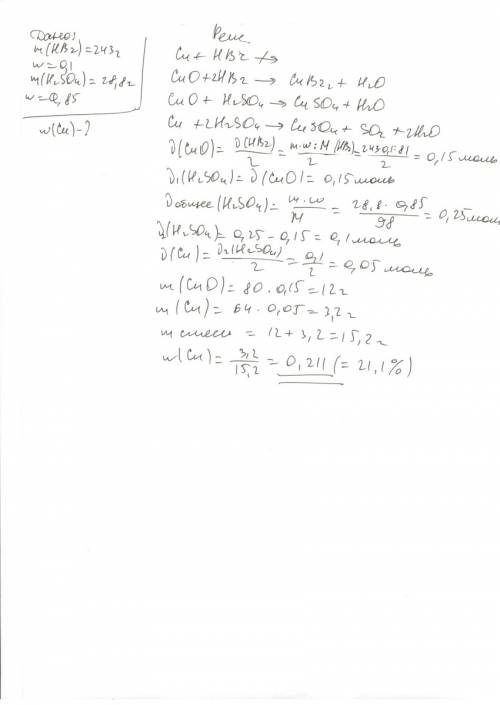 Дано:
m(HBr)=243г
w=0,1
m(H2SO4)=28,8г
w=0,85
w(Cu)-?
Реш.
Cu + HBr ↛
CuO+2HBr → CuBr2 + H2O
CuO + H2SO4 → CuSO4 + H2O
Cu + 2H2SO4 → CuSO4 + SO2 + 2H2O
ν(CuO)= ν(HBr)/2 = m·w:M(HBr)/2 = 243·0,1:81/2 = 0,15 моль
ν1(H2SO4)= ν(CuO)= 0,15 моль
ν общее (H2SO4)= m·w/M = 28,8·0,85/98 = 0,25 моль
ν2(H2SO4)= 0,25-0,15= 0,1 моль
ν(Cu)= ν2(H2SO4)/2 = 0,1/2 = 0,05 моль
m(CuO)= 80·0,15=12г
m(Cu)= 64·0,05=3,2г
m смеси = 12+3,2=15,2г
w(Cu)= 3,2/15,2 = 0,211 (=21,1%)